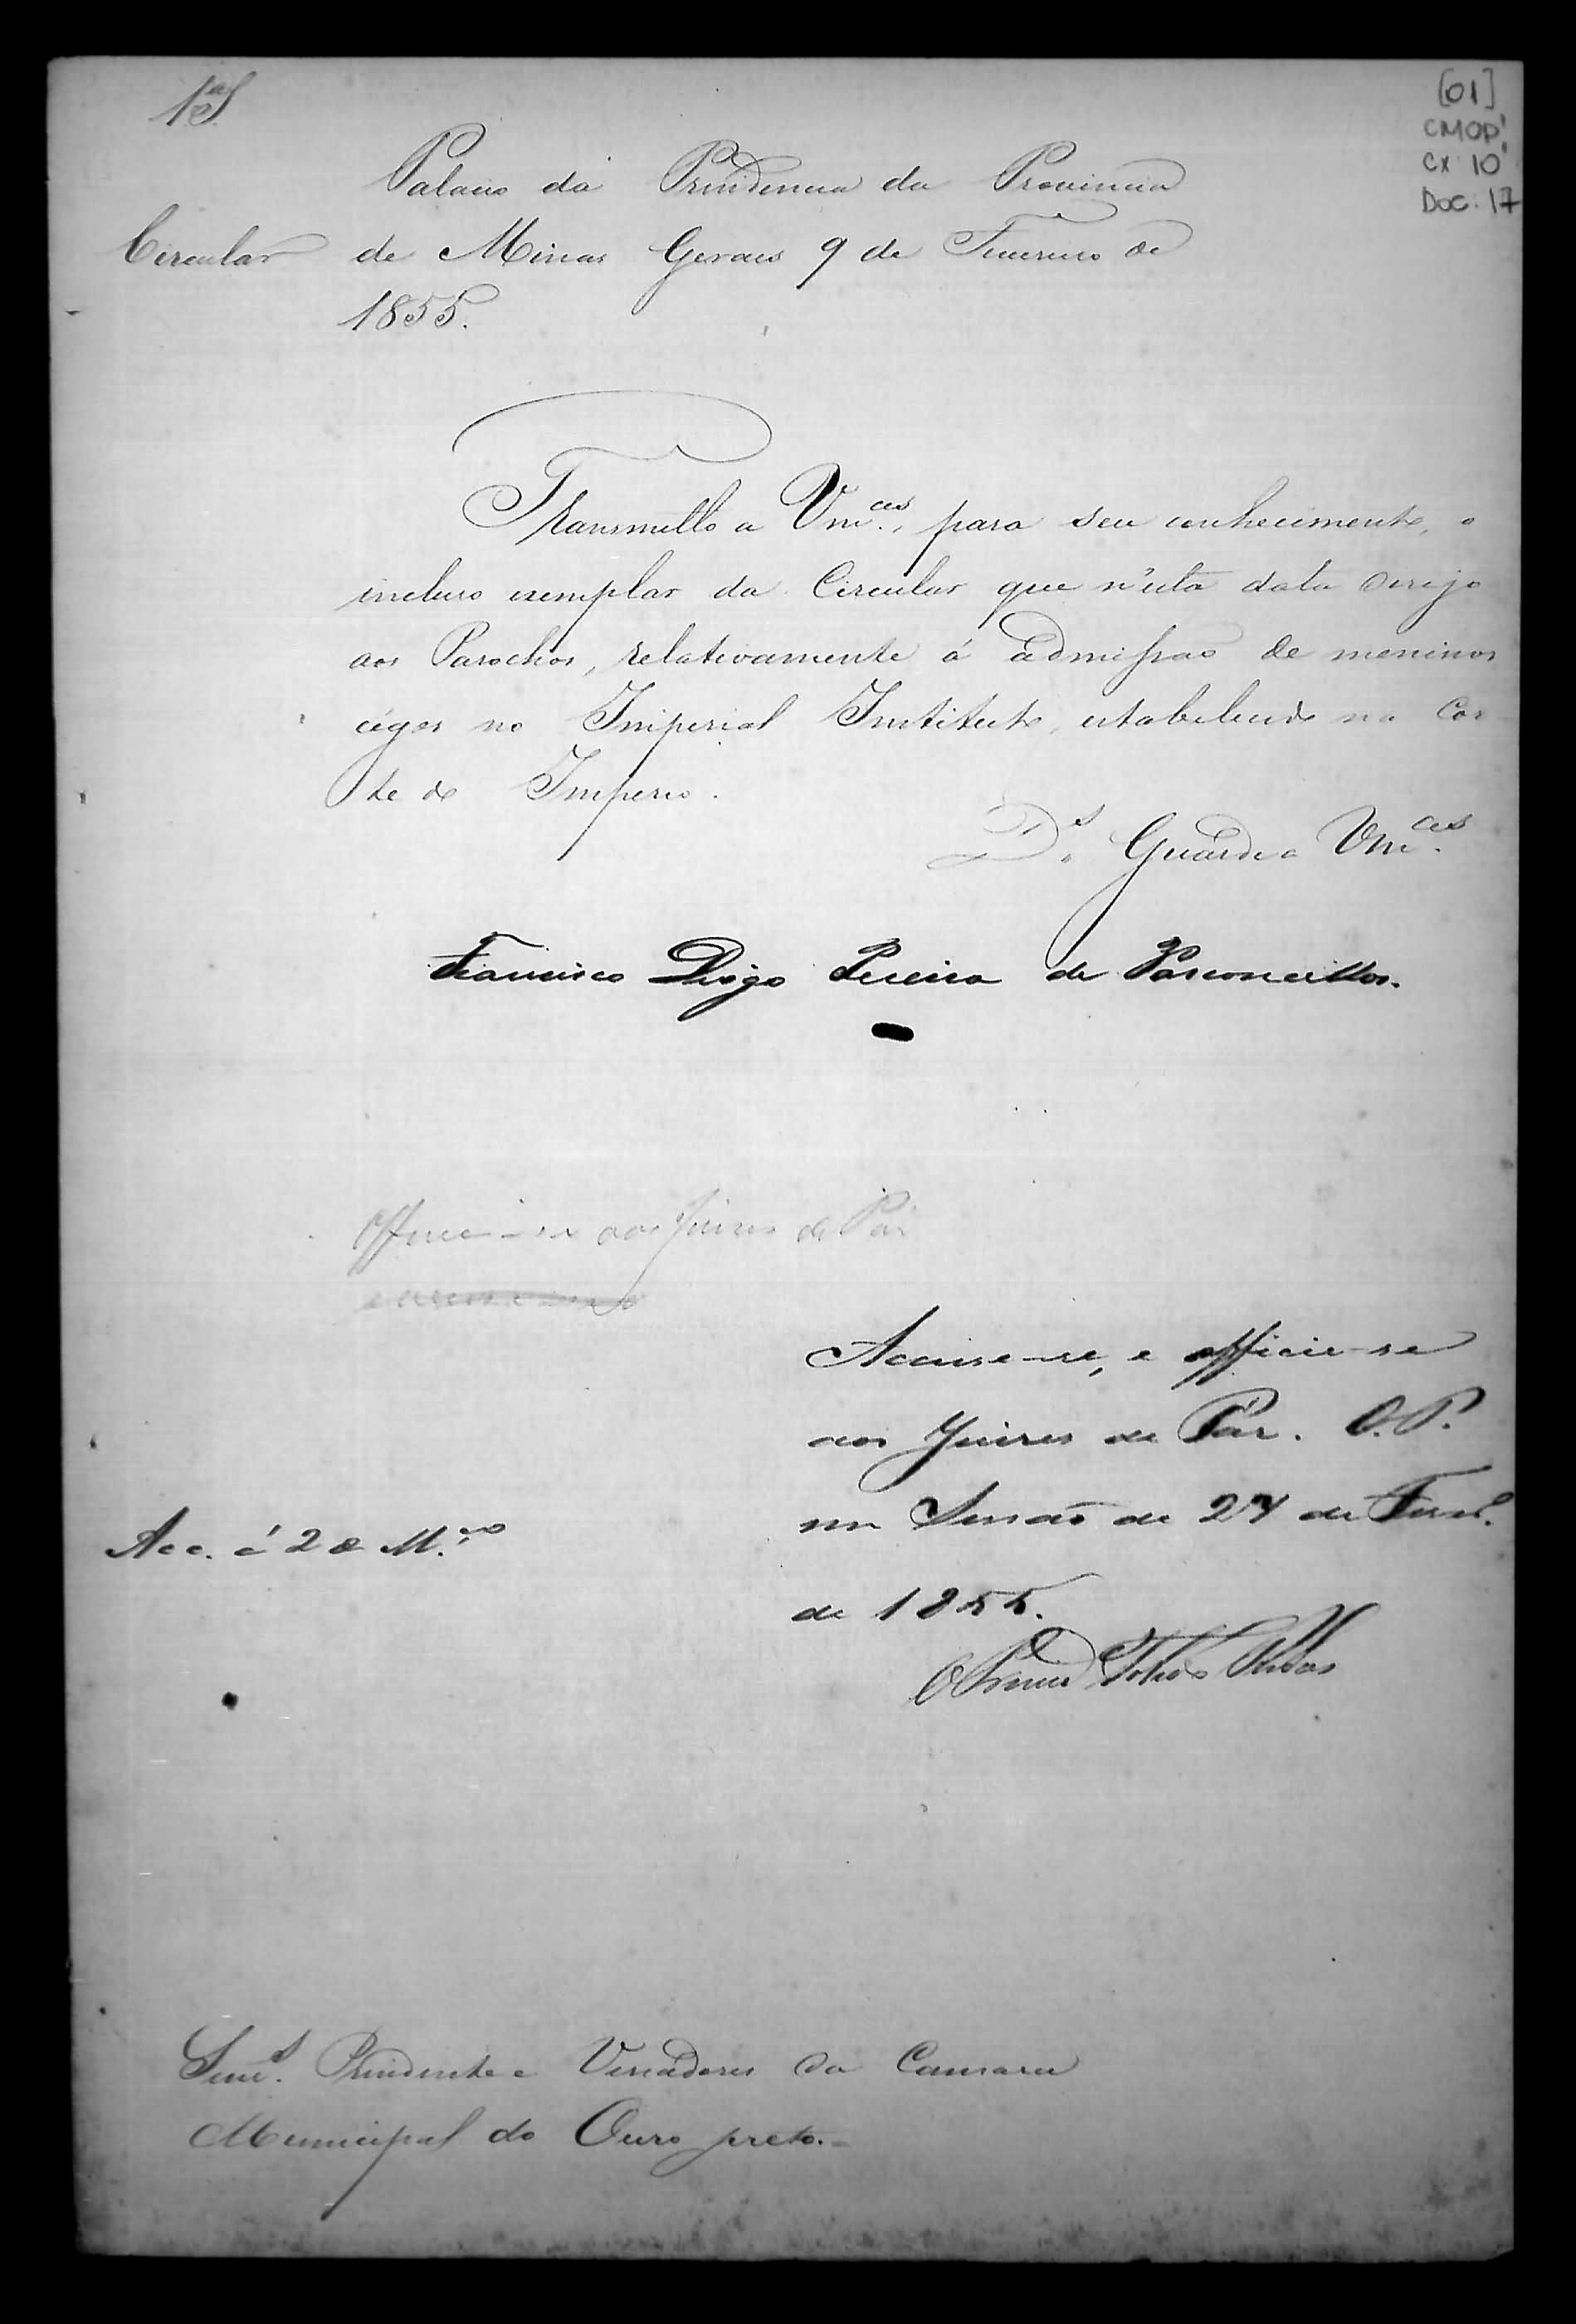 1ª S
[01]
CMOP
CX 10
DOC: 17
Palacio da Presidencia da Provincia
Circular de Minas Geraes 9 de Fevereiro de
1855.
Transmitto a Vm.ces, para seu conhecimento, o
incluso exemplar da Circular que n'esta data dirijo
aos Parochos, relativamente á admissão de meninos
cégos no Imperial Instituto, estabelecido na Cor
te do Imperio.
D.s Guarde a Vm.ces
Francisco Diogo Pereira de Vasconcellos.
Officie-se aos Juizes de Paz
Accuse-se, e officie-se
aos Juizes de Paz. O. P.
em Sessão de 27 de Fever.o
de 1855.
Acc. á 2 de M.ço
Senr.s Presidente e Vereadores da Camara
Municipal do Ouro preto.